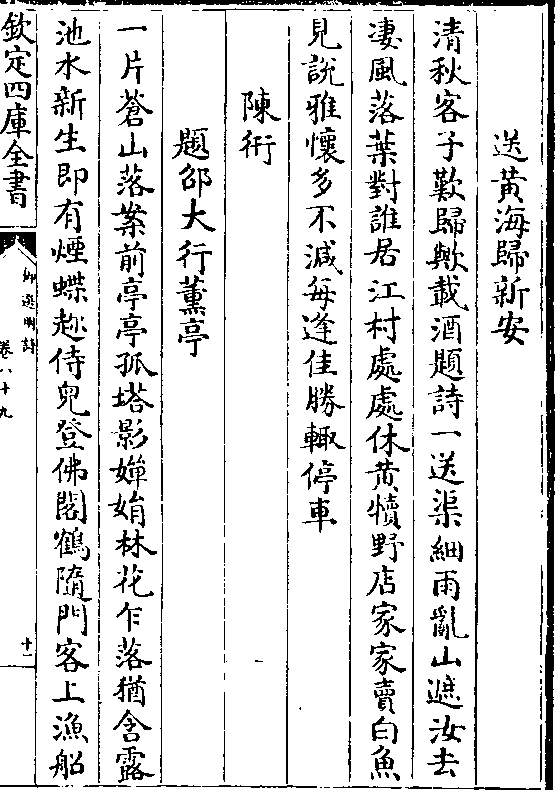 送黃海歸新安
清秋客子歎歸歟載酒題詩一送渠細雨亂山遮汝去
凄風落葉對誰居江村處處休黄犢野店家家賣白魚
見說雅懷多不減每逢佳勝輙停車
陳衎
題邵大行薰亭
一片蒼山落案前亭亭孤塔影嬋娟林花乍落猶含露
池水新生即有煙蝶趂侍兒登佛閣鶴隨門客上漁船
欽定四庫全書
御選明詩
卷八十九
十一